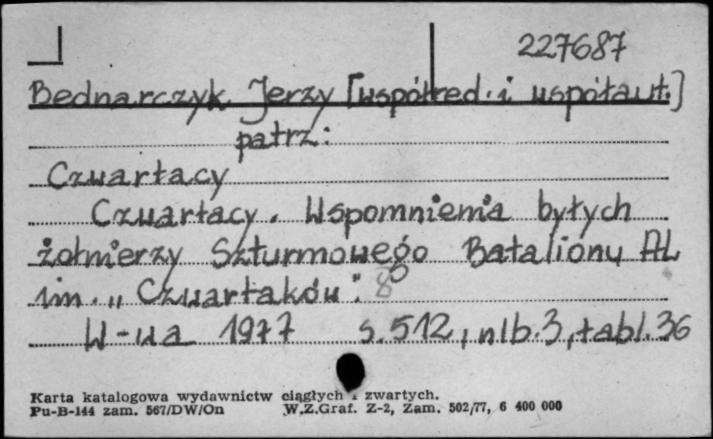 227687
Bednarczyk Jerzy [współred. i współaut.]
patrz:
Czwartacy
Czwartacy. Wspomnienia byłych
żołnierzy Szturmowego Batalionu AL
im. „Czwartaków". 8°
W-wa 1977 s. 512, nlb. 3, tabl. 36
Karta katalogowa wydawnictw ciągłych i zwartych.
Pu-B-144 zam. 567/DW/On W.Z.Graf. Z-2, Zam. 502/77, 6 400 000